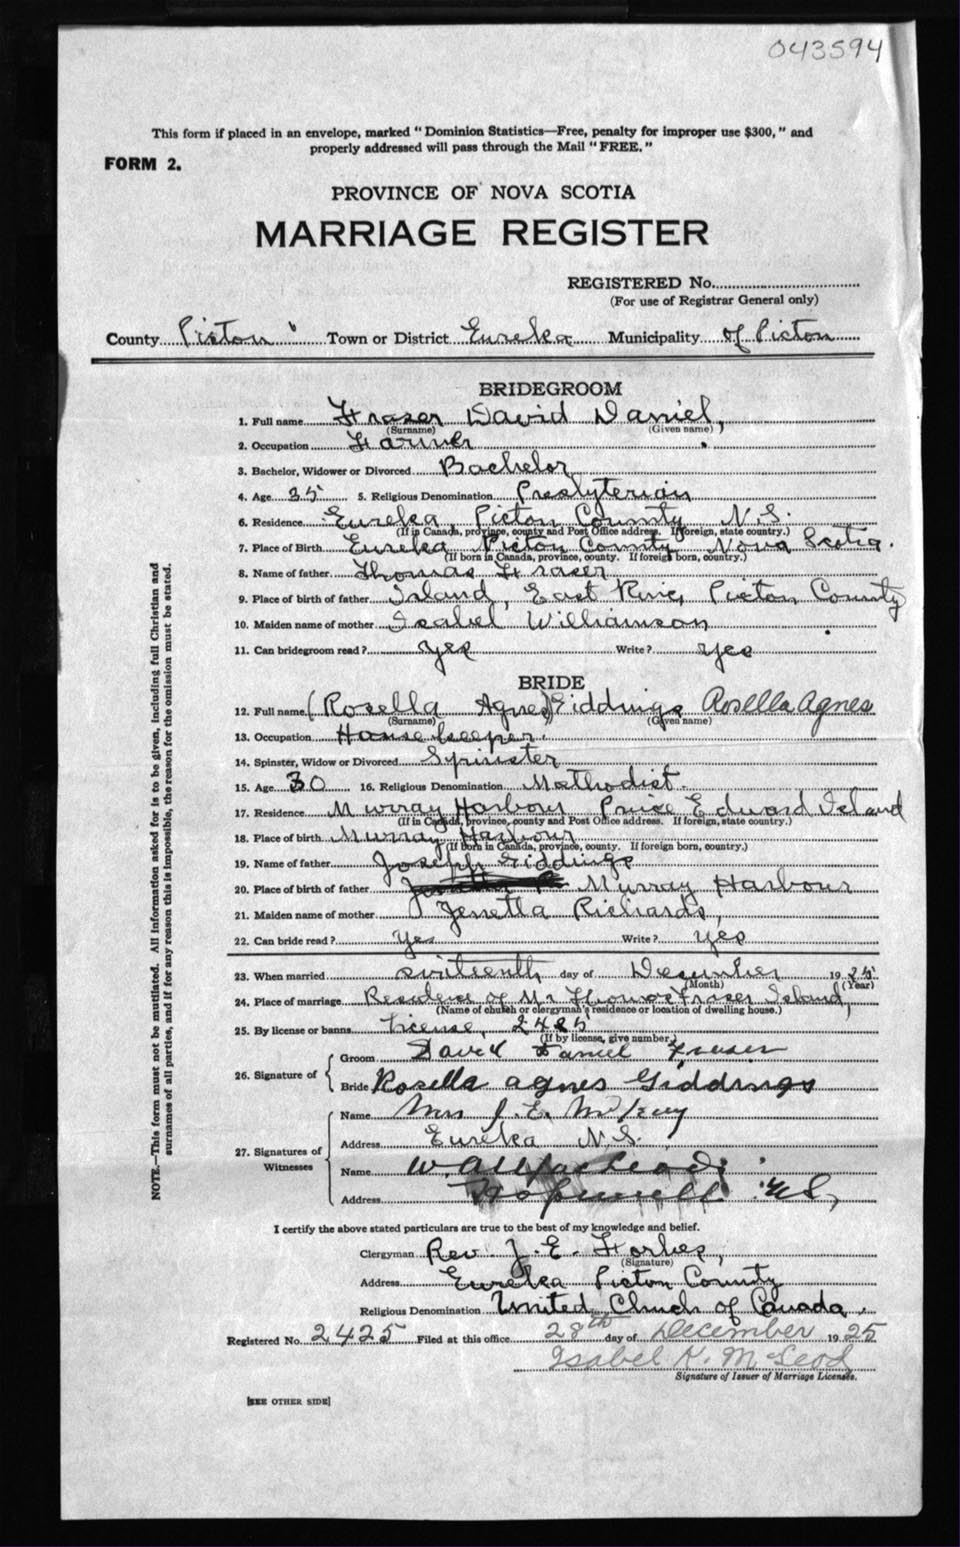 043594
This form if placed in an envelope, marked "Dominion Statistics—Free, penalty for improper use $300," and
properly addressed will pass through the Mail "FREE."
FORM 2.
PROVINCE OF NOVA SCOTIA
MARRIAGE REGISTER
REGISTERED No.
(For use of Registrar General only)
County Pictou Town or District Eureka Municipality of Pictou
BRIDEGROOM
1. Full name Fraser David Daniel,
(Surname) (Given name)
2. Occupation Farmer
3. Bachelor, Widower or Divorced Bachelor
4. Age 35 5. Religious Denomination Presbyterian
6. Residence Eureka, Pictou County N.S.
(If in Canada, province, county and Post Office address. If foreign, state country.)
7. Place of Birth Eureka Pictou County Nova Scotia.
(If born in Canada, province, county. If foreign born, country.)
8. Name of father Thomas Fraser
9. Place of birth of father Island, East River, Pictou County
10. Maiden name of mother Isabel Williamson
11. Can bridegroom read? yes Write? yes
BRIDE
12. Full name (Rosella Agnes) Giddings Rosella Agnes
(Surname) (Given name)
13. Occupation Housekeeper.
14. Spinster, Widow or Divorced Spinister
15. Age 30 16. Religious Denomination Methodist.
17. Residence Murray Harbour Price Edward Island
(If in Canada, province, county and Post Office address. If foreign, state country.)
18. Place of birth Murray Harbour
(If born in Canada, province, county. If foreign born, country.)
19. Name of father Joseph Giddings
20. Place of birth of father Murray Harbour
21. Maiden name of mother Jenetta Richards,
22. Can bride read? yes Write? yes
23. When married sixteenth day of December 1925
(Month) (Year)
24. Place of marriage Residence of Mr Thomas Fraser Island,
(Name of church or clergyman's residence or location of dwelling house.)
25. By license or banns License, 2425
(If by license, give number.)
26. Signature of { Groom David Daniel Fraser
Bride Rosella agnes Giddings
27. Signatures of Witnesses
Name Mrs J. E. McKay
Address Eureka N.S.
Name W. A. MacLeod
Address Hopewell N.S,
I certify the above stated particulars are true to the best of my knowledge and belief.
Clergyman Rev. J. E. Forbes,
(Signature)
Address Eureka Pictou County
Religious Denomination United Church of Canada.
Registered No. 2425 Filed at this office 28th day of December 1925
Isabel K. McLeod
Signature of Issuer of Marriage Licenses.
[SEE OTHER SIDE]
NOTE.—This form must not be mutilated. All information asked for is to be given, including full Christian and
surnames of all parties, and if for any reason this is impossible, the reason for the omission must be stated.